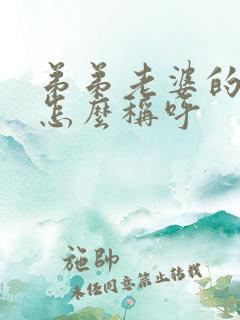 弟弟老婆的
怎麼稱呼
施帥
未经同意禁止转载